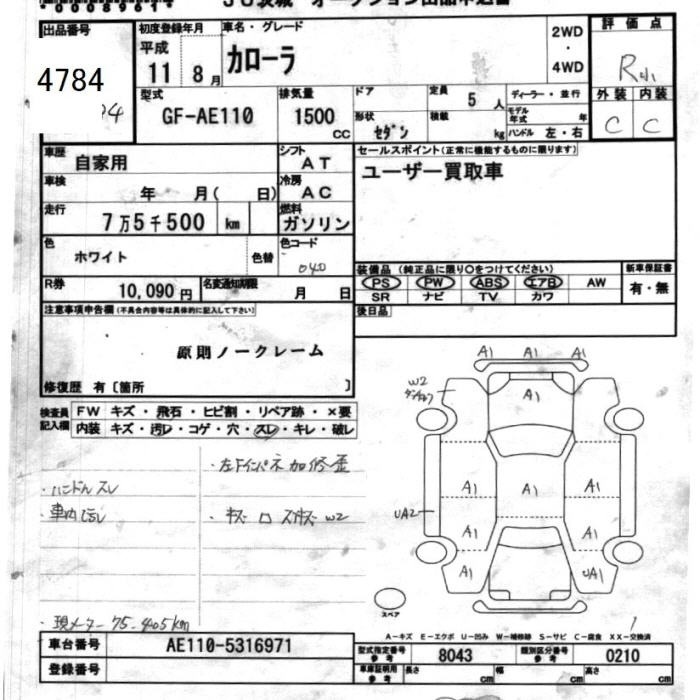 00089614
JU茨城 オークション出品申込書
出品番号
4784
初度登録年月
平成
11 8月
車名・グレード
カローラ
2WD
・
4WD
評価点
R
外装 内装
C C
型式
GF-AE110
排気量
1500
CC
ドア
形状
セダン
定員
5人
積載
kg
ディーラー・並行
モデル年式 年
ハンドル 左・右
車歴
自家用
シフト
AT
車検
年 月( 日)
冷房
AC
走行
7万5千500 km
燃料
ガソリン
色
ホワイト
色替
色コード
040
R券
10,090円
名変通知期限
月 日
セールスポイント(正常に機能するものに限ります)
ユーザー買取車
装備品 (純正品に限り○をつけてください)
PS PW ABS エアB AW
SR ナビ TV カワ
新車保証書
有・無
後日品
注意事項申告欄(不具合内容等は具体的に記入して下さい)
原則ノークレーム
修復歴 有〔箇所 〕
検査員記入欄
FW キズ・飛石・ヒビ割・リペア跡・×要
内装 キズ・汚レ・コゲ・穴・スレ・キレ・破レ
・ハンドルスレ
・現メーター 75,405km
W2
A1 A1 A1
A1
A1 A1 A1
UA2
A1 A1
A1 A1
A1 UA1
スペア
A-キズ E-エクボ U-凹み W-補修跡 S-サビ C-腐食 XX-交換済
車台番号
AE110-5316971
登録番号
型式指定番号
参考
8043
類別区分番号
参考
0210
車庫証明用
参考
長さ cm
幅 cm
高さ cm